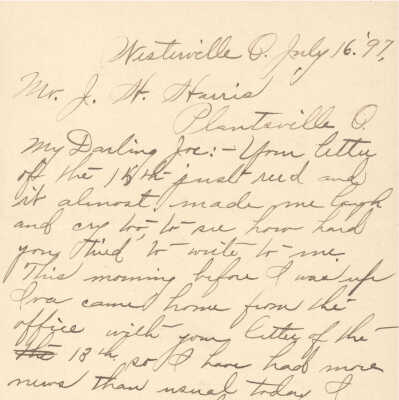 Westerville O. July 16. '97.
Mr. J. W. Harris
Plantsville O.
My Darling Joe:- Your letter
of the 15th just recd and
it almost made me laugh
and cry too, to see how hard
you tried to write to me.
This morning before I was up
Iva came home from the
office with your letter of the
the 13th, so I have had more
news than usual today I